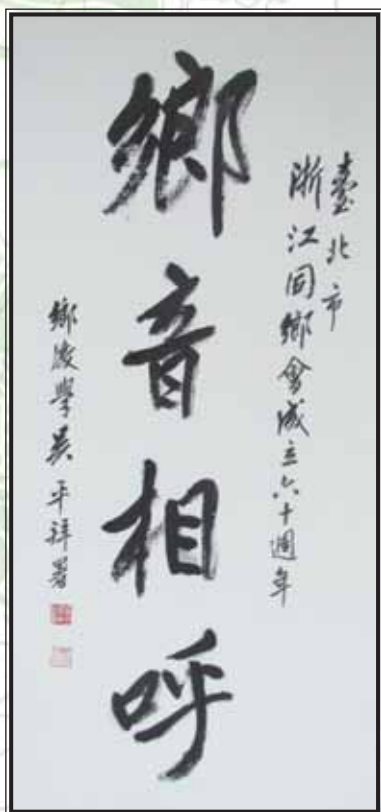 臺北市
浙江同鄉會成立六十週年
鄉音相呼
鄉後學吳平拜署